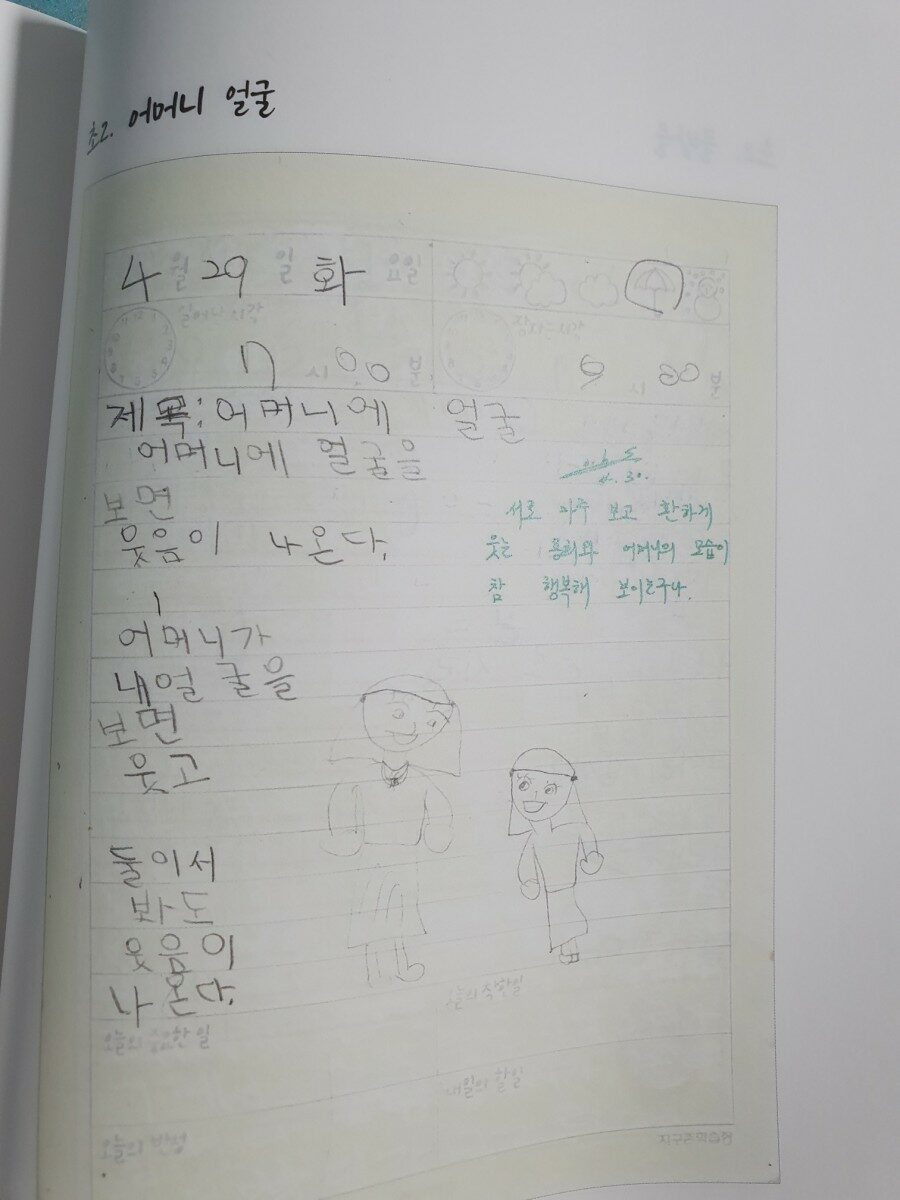 초2. 어머니 얼굴
4월 29일 화요일
일어난 시각
잠자는 시각
시 00분
시 분
제목: 어머니에 얼굴
어머니에 얼굴을
보면
웃음이 나온다.
4. 30.
서로 마주 보고 환하게
웃는 어머니의 모습이
참 행복해 보이는구나.
어머니가
내얼굴을
보면
웃고
둘이서
봐도
웃음이
나온다.
오늘의 착한일
오늘의 중요한 일
내일의 할일
오늘의 반성